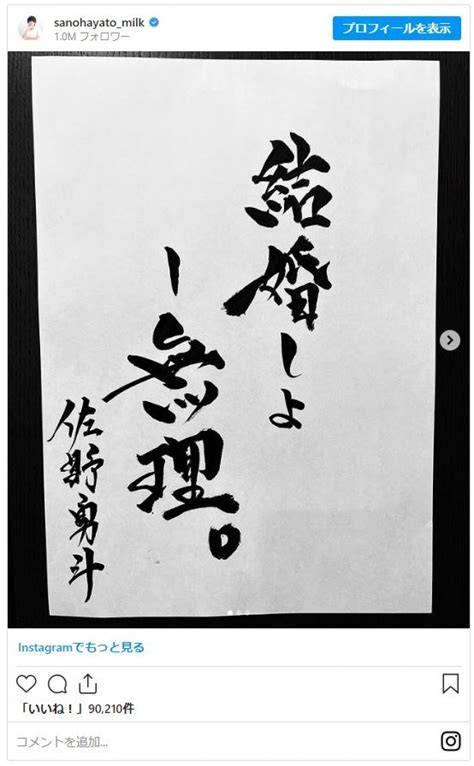 sanohayato_milk
1.0M フォロワー
プロフィールを表示
結婚しよ
ー無理。
佐野勇斗
Instagramでもっと見る
「いいね！」90,210件
コメントを追加...